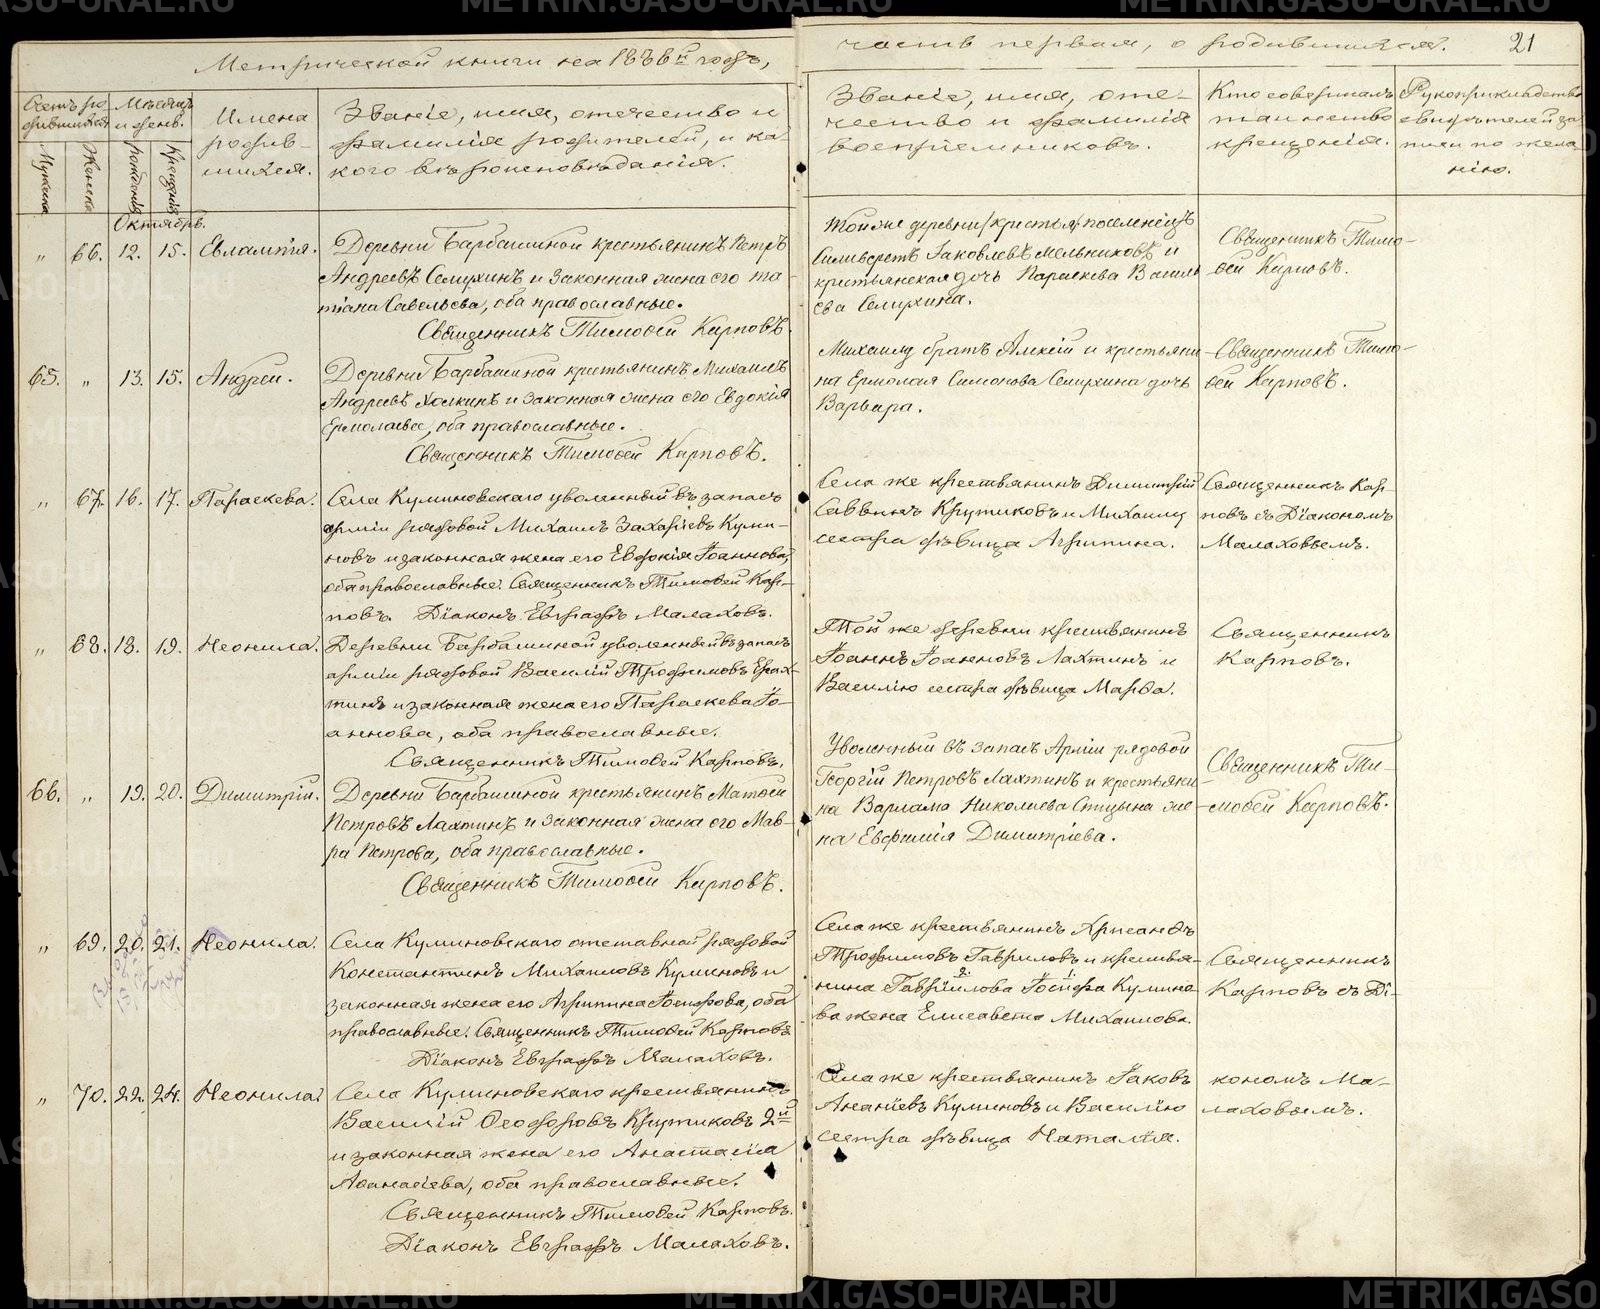 Метрической книги на 1886й годъ,
часть первая, о родившихся.
21
Счетъ ро-
дившихся
Мужска
Женска
Мѣсяцъ
и день.
рожденія
Крещенія
Имена
родив-
шихся.
Званіе, имя, отчество и
фамилія родителей, и ка
кого вѣроисповѣданія.
Званіе, имя, оте-
чество и фамилія
воспріемниковъ.
Кто совершалъ
таинство
крещенія.
Рукоприкладство
свидѣтелей за
писи по жела
нію.
Октябрь.
„ 66. 12. 15. Евлампія.
Деревни Барбашиной крестьянинъ Петръ
Андреевъ Семухинъ и законная жена его та
тіана Савельева, оба православные.
Священникъ Тимоѳей Карповъ.
Той же деревни крестья. поселенецъ
Силиверстъ Іаковлевъ Мельниковъ и
крестьянская дочь Параскева Василь
ева Семухина.
Священникъ Тимо-
ѳей Карповъ.
65. „ 13. 15. Андрей.
Деревни Барбашиной крестьянинъ Михаилъ
Андреевъ Холкинъ и законная жена его Евдокія
Ермолаева, оба православные.
Священникъ Тимоѳей Карповъ.
Михаилу братъ Алексій и крестьяни
на Ермолая Симонова Семухина дочь
Варвара.
Священникъ Тимо-
ѳей Карповъ.
„ 67. 16. 17. Параскева.
Села Куминовскаго уволенный въ запасъ
арміи рядовой Михаилъ Захаріевъ Куми-
новъ и законная жена его Евдокія Іоаннова,
оба православные. Священникъ Тимоѳей Кар-
повъ. Діаконъ Евграфъ Малаховъ.
Села же крестьянинъ Димитрій
Саввинъ Крутиковъ и Михаилу
сестра дѣвица Агрипина.
Священникъ Кар-
повъ съ Діакономъ
Малаховымъ.
„ 68. 18. 19. Неонила.
Деревни Барбашиной уволенный въ запасъ
арміи рядовой Василій Трофимовъ
тинъ и законная жена его Параскева Іо-
аннова, оба православные.
Священникъ Тимоѳей Карповъ.
Той же деревни крестьянинъ
Іоаннъ Іоанновъ Лахтинъ и
Василію сестра дѣвица Марѳа.
Священникъ
Карповъ.
66. „ 19. 20. Димитрій.
Деревни Барбашиной крестьянинъ Матѳей
Петровъ Лахтинъ и законная жена его Мав-
ра Петрова, оба православные.
Священникъ Тимоѳей Карповъ.
Уволенный въ запасъ Арміи рядовой
Георгій Петровъ Лахтинъ и крестьяни
на Варлама Николаева Спицына же
на Евфимія Димитріева.
Священникъ Ти-
моѳей Карповъ.
„ 69. 20. 21. Неонила.
Села Куминовскаго отставной рядовой
Константинъ Михаиловъ Куминовъ и
законная жена его Агрипина Іосифова, оба
православные. Священникъ Тимоѳей Карповъ
Діаконъ Евграфъ Малаховъ.
Села же крестьянинъ Хрисанфъ
Трофимовъ Гавриловъ и крестья-
нина Гавріилова Іосифа Кумино
ва жена Елисавета Михаилова.
Священникъ
Карповъ съ Ді-
„ 70. 22. 24. Неонила
Села Куминовскаго крестьянинъ
Василій Ѳеодоровъ Крутиковъ 2й
и законная жена его Анастасія
Аѳанасіева, оба православные.
Священникъ Тимоѳей Карповъ.
Діаконъ Евграфъ Малаховъ.
Села же крестьянинъ Іаковъ
Ананіевъ Куминовъ и Василію
сестра дѣвица Наталія.
кономъ Ма-
лаховымъ.
METRIKI.GASO-URAL.RU